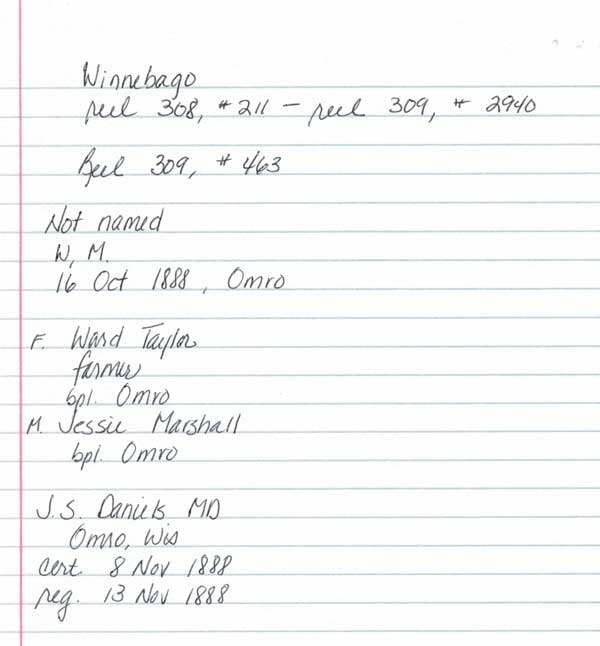 Winnebago
reel 308, #211 – reel 309, # 2940
Reel 309, # 463
Not named
W, M.
16 Oct 1888, Omro
F. Ward Taylor
farmer
bpl. Omro
M. Jessie Marshall
bpl. Omro
J.S. Daniels MD
Omro, Wis
cert. 8 Nov 1888
reg. 13 Nov 1888